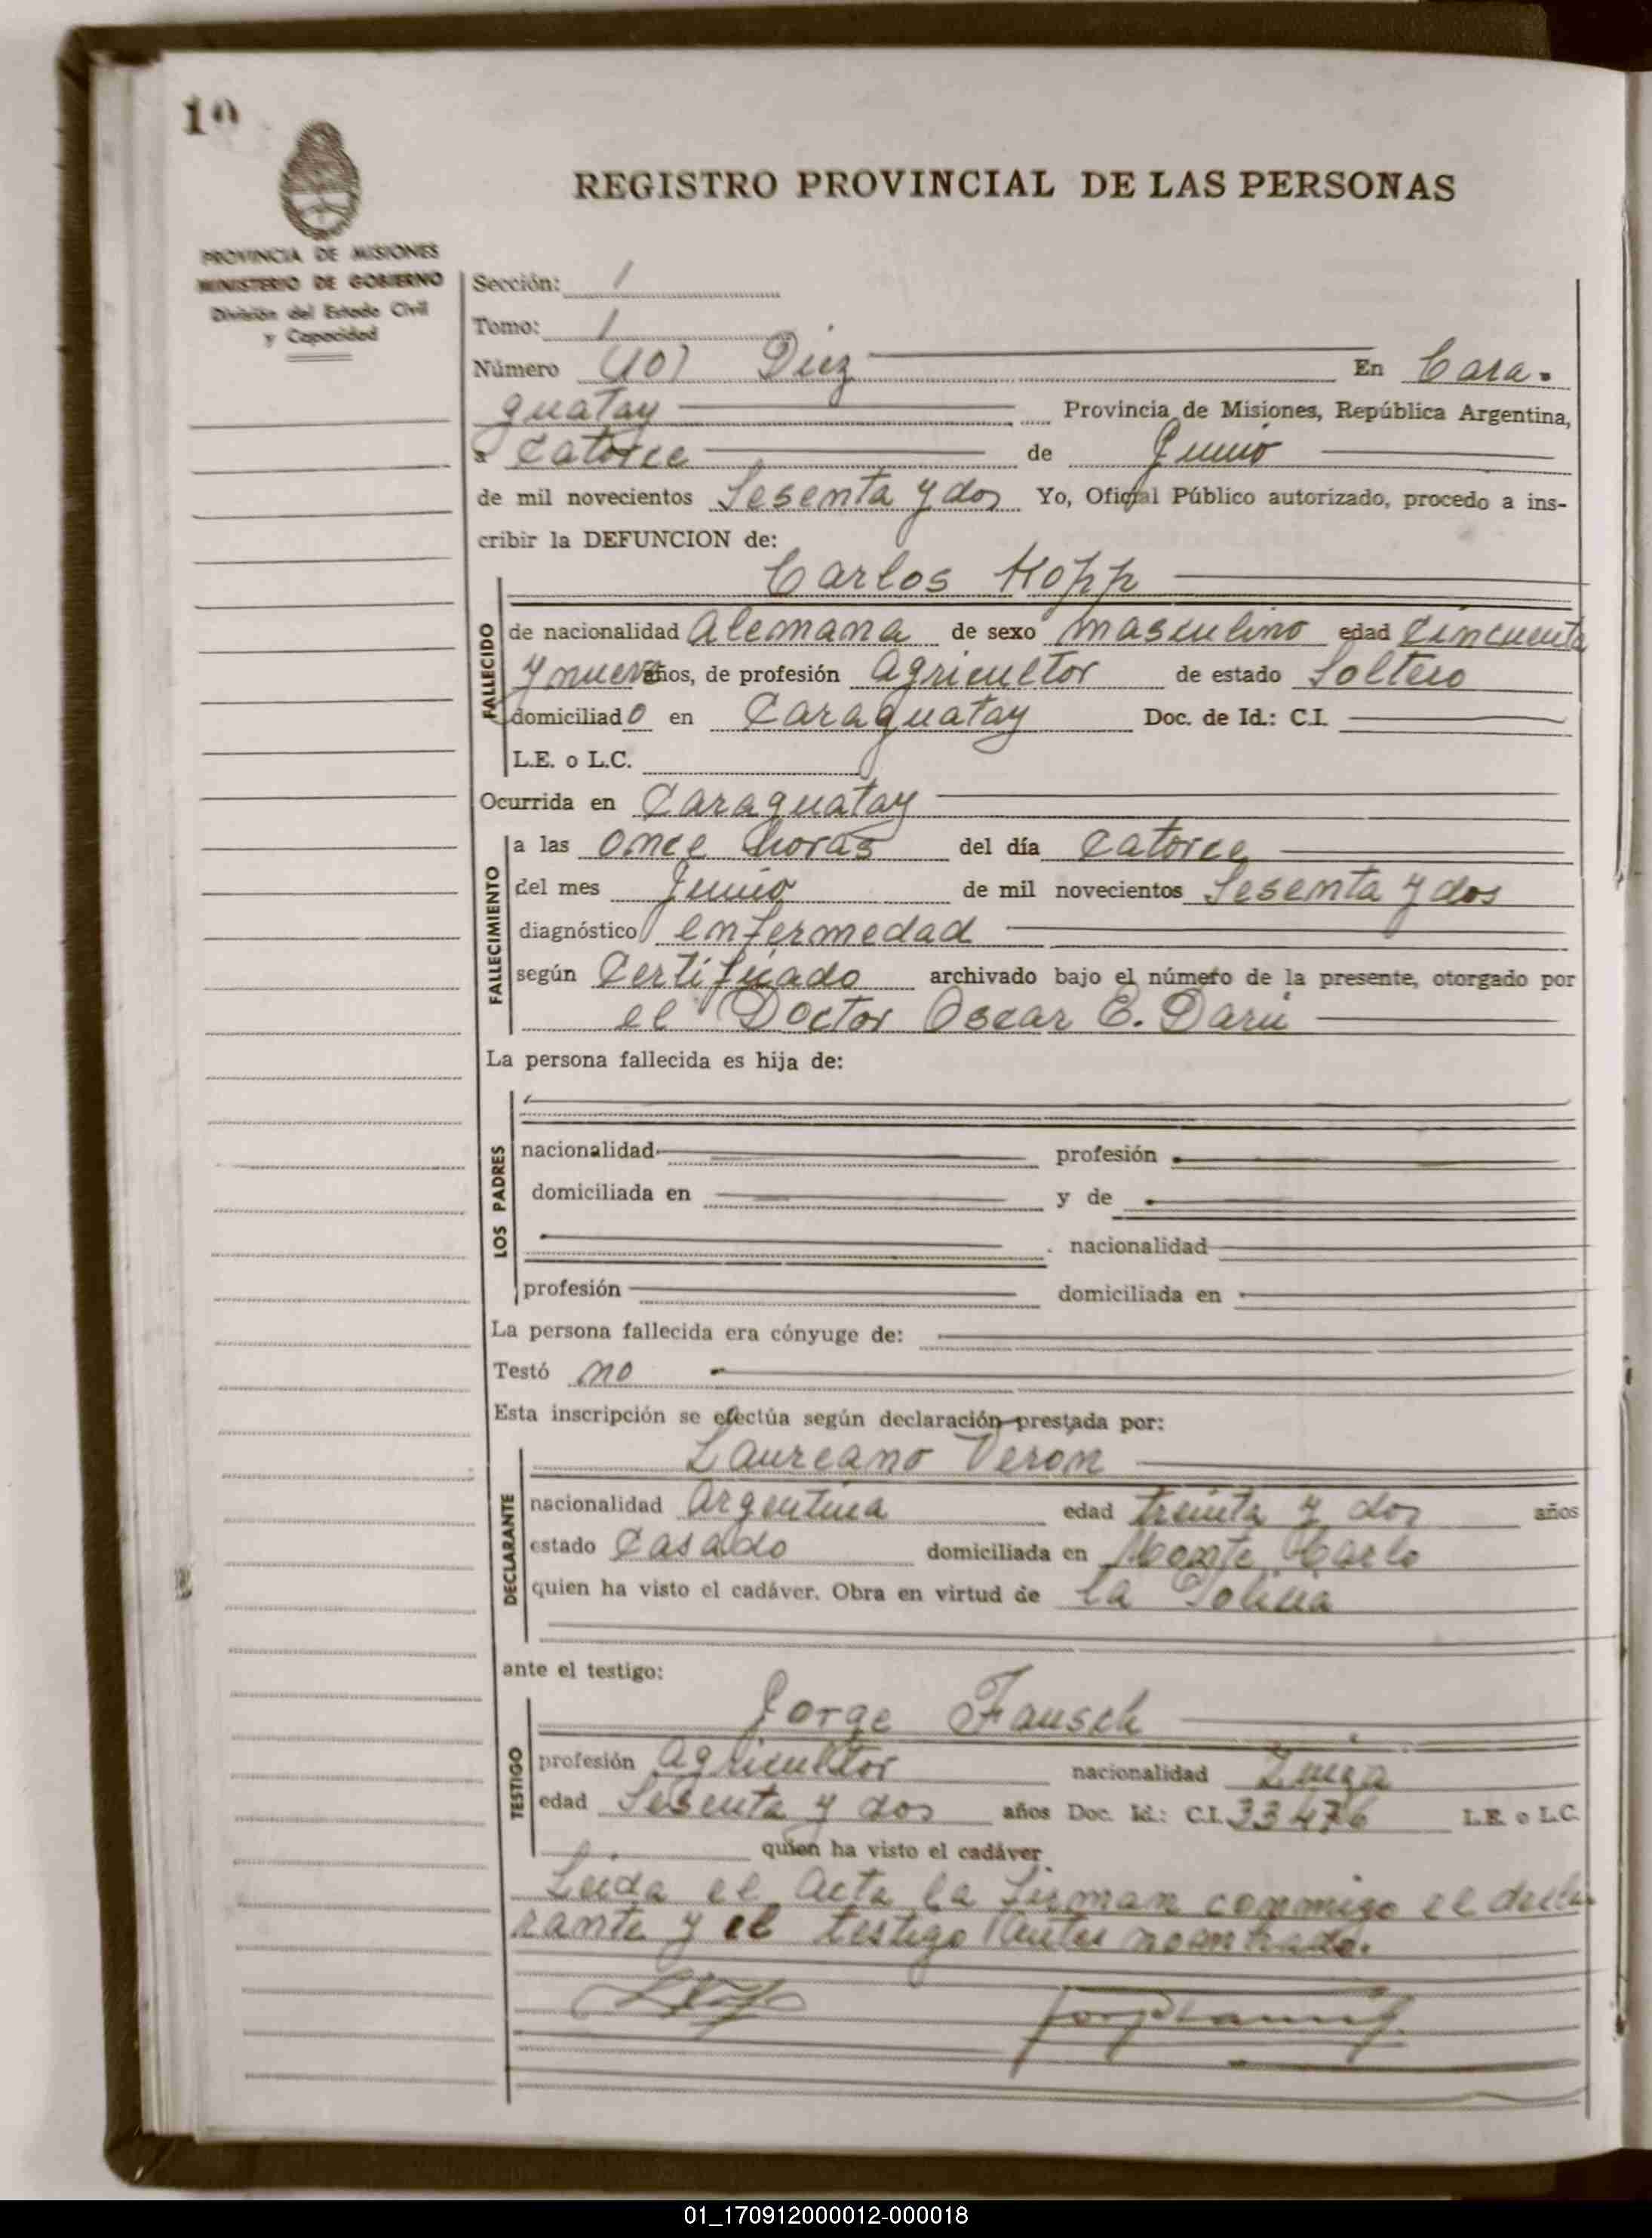 10
REGISTRO PROVINCIAL DE LAS PERSONAS
PROVINCIA DE MISIONES
MINISTERIO DE GOBIERNO
División del Estado Civil
y Capacidad
Sección: 1
Tomo: 1
Número (10) Diez En Cara-
guatay Provincia de Misiones, República Argentina,
a Catorce de Junio
de mil novecientos Sesenta y dos Yo, Oficial Público autorizado, procedo a ins-
cribir la DEFUNCION de:
Carlos Hopp
FALLECIDO
de nacionalidad Alemana de sexo masculino edad Cincuenta
y nueve años, de profesión Agricultor de estado Soltero
domiciliado en Caraguatay Doc. de Id.: C.I.
L.E. o L.C.
Ocurrida en Caraguatay
FALLECIMIENTO
a las once horas del día Catorce
del mes Junio de mil novecientos Sesenta y dos
diagnóstico enfermedad
según Certificado archivado bajo el número de la presente, otorgado por
el Doctor Oscar E. Darú
La persona fallecida es hija de:
LOS PADRES
nacionalidad profesión
domiciliada en y de
nacionalidad
profesión domiciliada en
La persona fallecida era cónyuge de:
Testó no
Esta inscripción se efectúa según declaración prestada por:
DECLARANTE
Laureano Veron
nacionalidad Argentina edad treinta y dos años
estado Casado domiciliada en Monte Carlo
quien ha visto el cadáver. Obra en virtud de la Policia
ante el testigo:
TESTIGO
Jorge Fausch
profesión Agricultor nacionalidad Zuiza
edad Sesenta y dos años Doc. Id.: C.I. 33476 L.E. o L.C.
quien ha visto el cadáver
Leida el Acta la firman conmigo el decla
rante y el testigo antes nombrado.
01_170912000012-000018